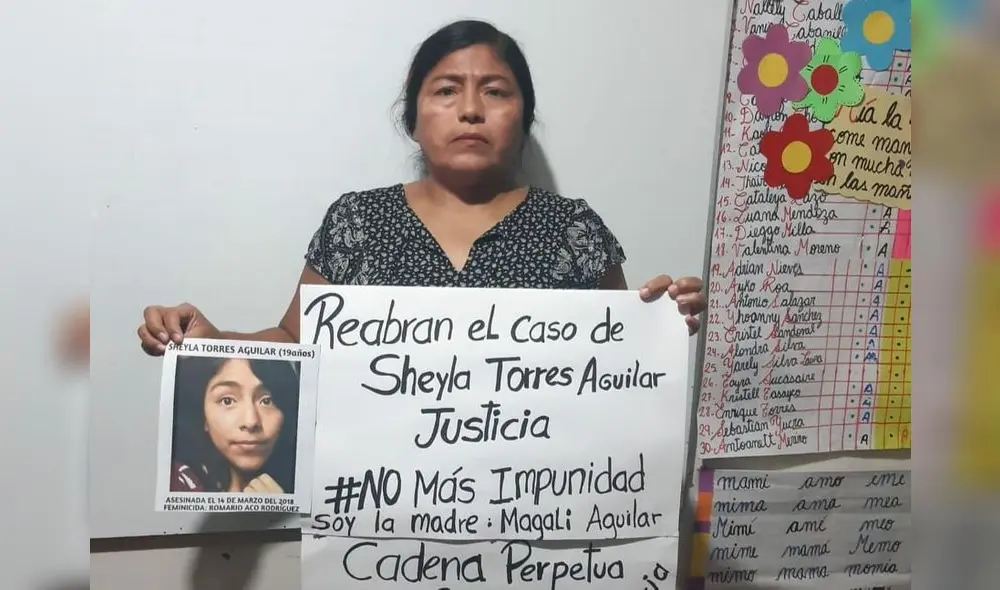 Reabran el caso de
Sheyla Torres Aguilar
Justicia
#NO Más Impunidad
soy la madre: Magali Aguilar
Cadena Perpetua
SHEYLA TORRES AGUILAR (19años)
ASESINADA EL 14 DE MARZO DEL 2018
FEMINICIDA: ROMARIO ACO RODRÍGUEZ
ía la
come man
on mucha
las mañ
15. Cataleya
16. Luana Mendoza
17. Dieggo Milla
18. Valentina Moreno
19. Adrian Nieves
20. Ayko Roa
21. Antonio Salazar
22. Yhoanny Sánchez
23. Cristel Sandoval
24. Alondra Silva
25. Yarely Silva Laura
26. Zayra Sucasaire
27. Kristell Tasayco
28. Enrique Torres
29. Sebastian Yucra
30. Antoanett Merino
mami amo eme
mima ama mea
Mimí amé meo
mime mamá Memo
mimo mama momia